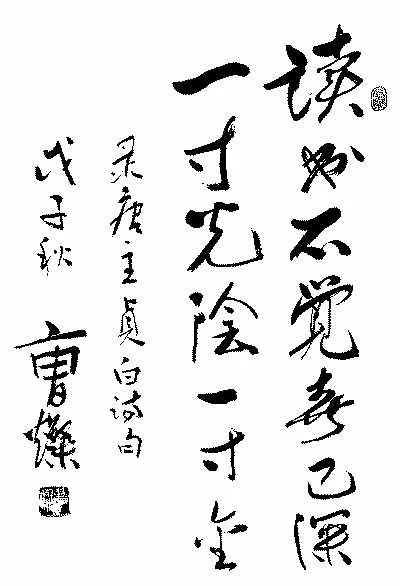 读书不覺春已深
一寸光陰一寸金
录唐王貞白诗句
戊子秋
曹燦